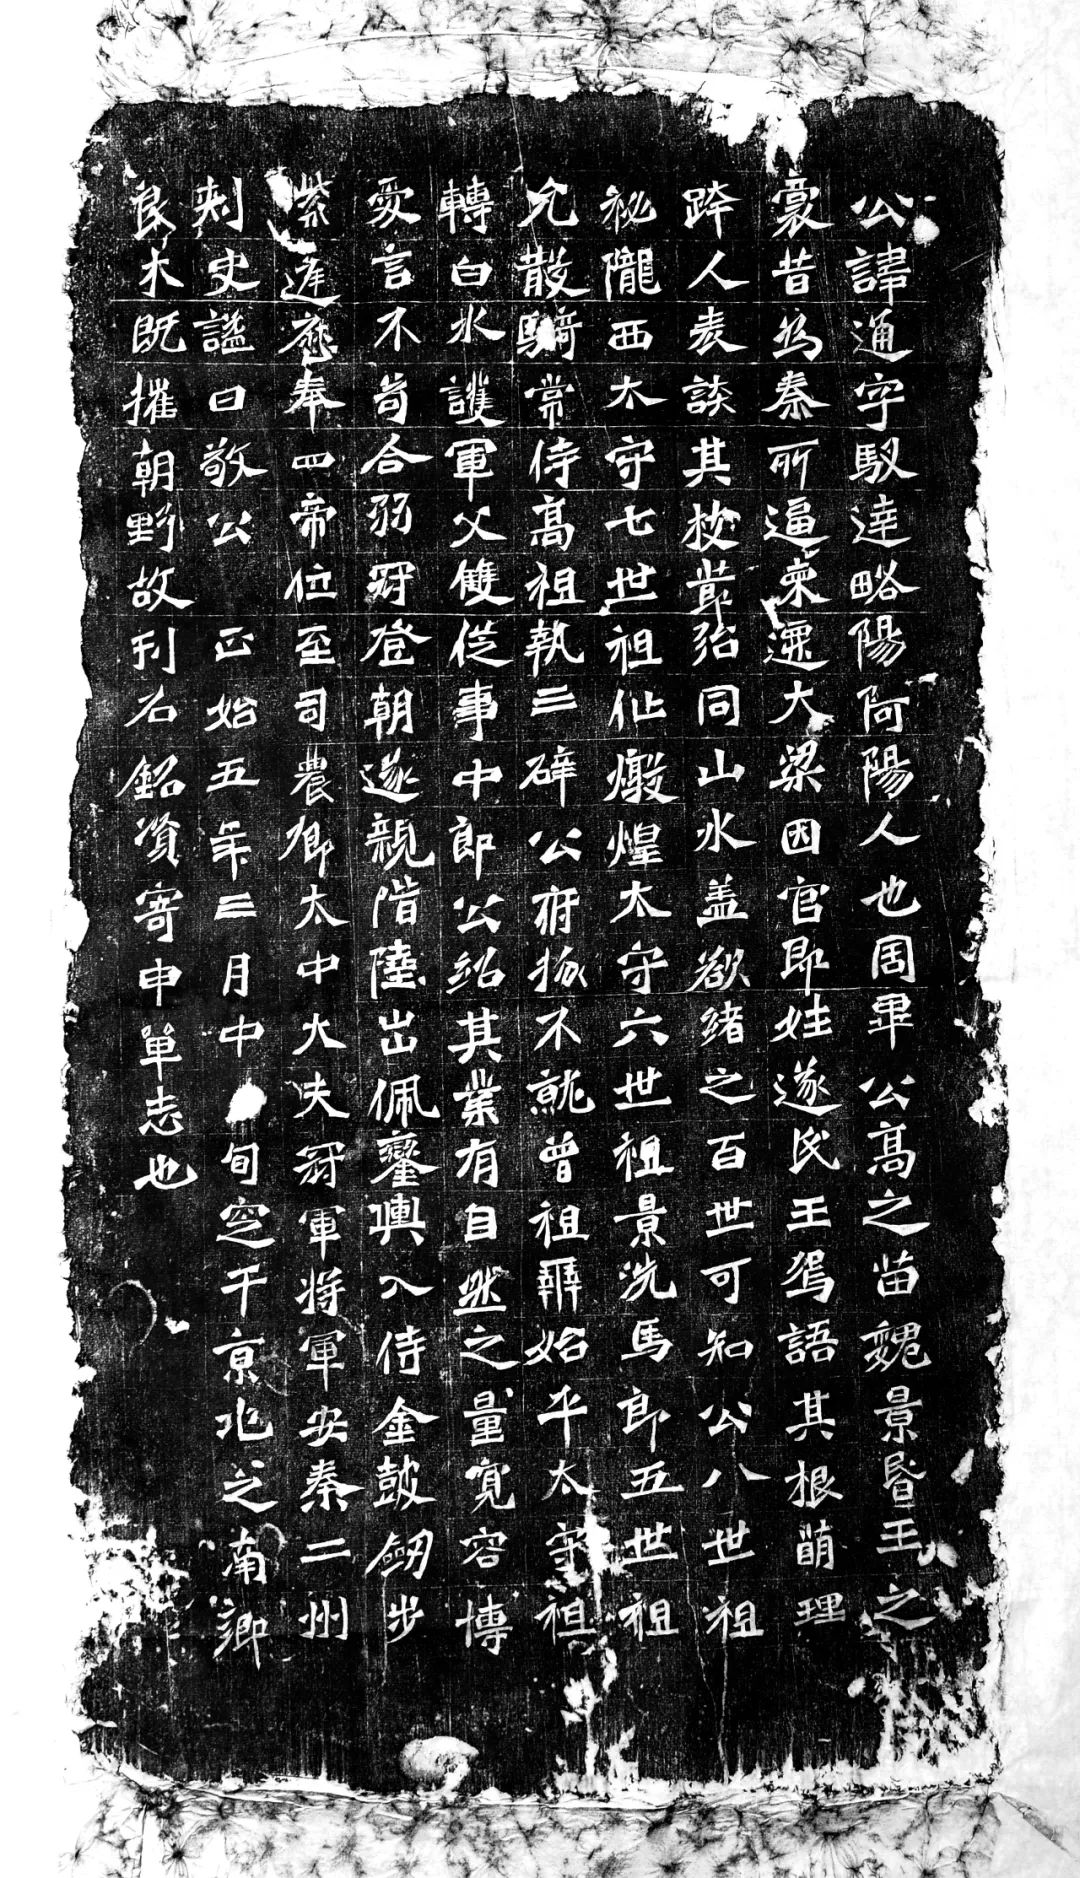 公諱通字馭達略陽阿陽人也周畢公高之苗魏景昬王之
裔昔為秦所逼東遷大梁因官即姓遂氏王焉語其根萌理
跨人表談其枝葉殆同山水盖欲緒之百世可知公八世祖
祕隴西太守七世祖仳燉煌太守六世祖景洗馬郎五世祖
允散騎常侍高祖執三礕公府掾不就曾祖羆始平太守祖
轉白水護軍父雙從事中郎公紹其業有自然之量寬容博
愛言不苟合弱冠登朝遂親階陸出佩鑾輿入侍金鼓劒步
紫遲歷奉四帝位至司農卿太中大夫冠軍將軍安秦二州
刾史諡曰敬公 正始五年三月中旬空于京兆之南鄉
良木既摧朝野故刊石銘讚寄申單志也